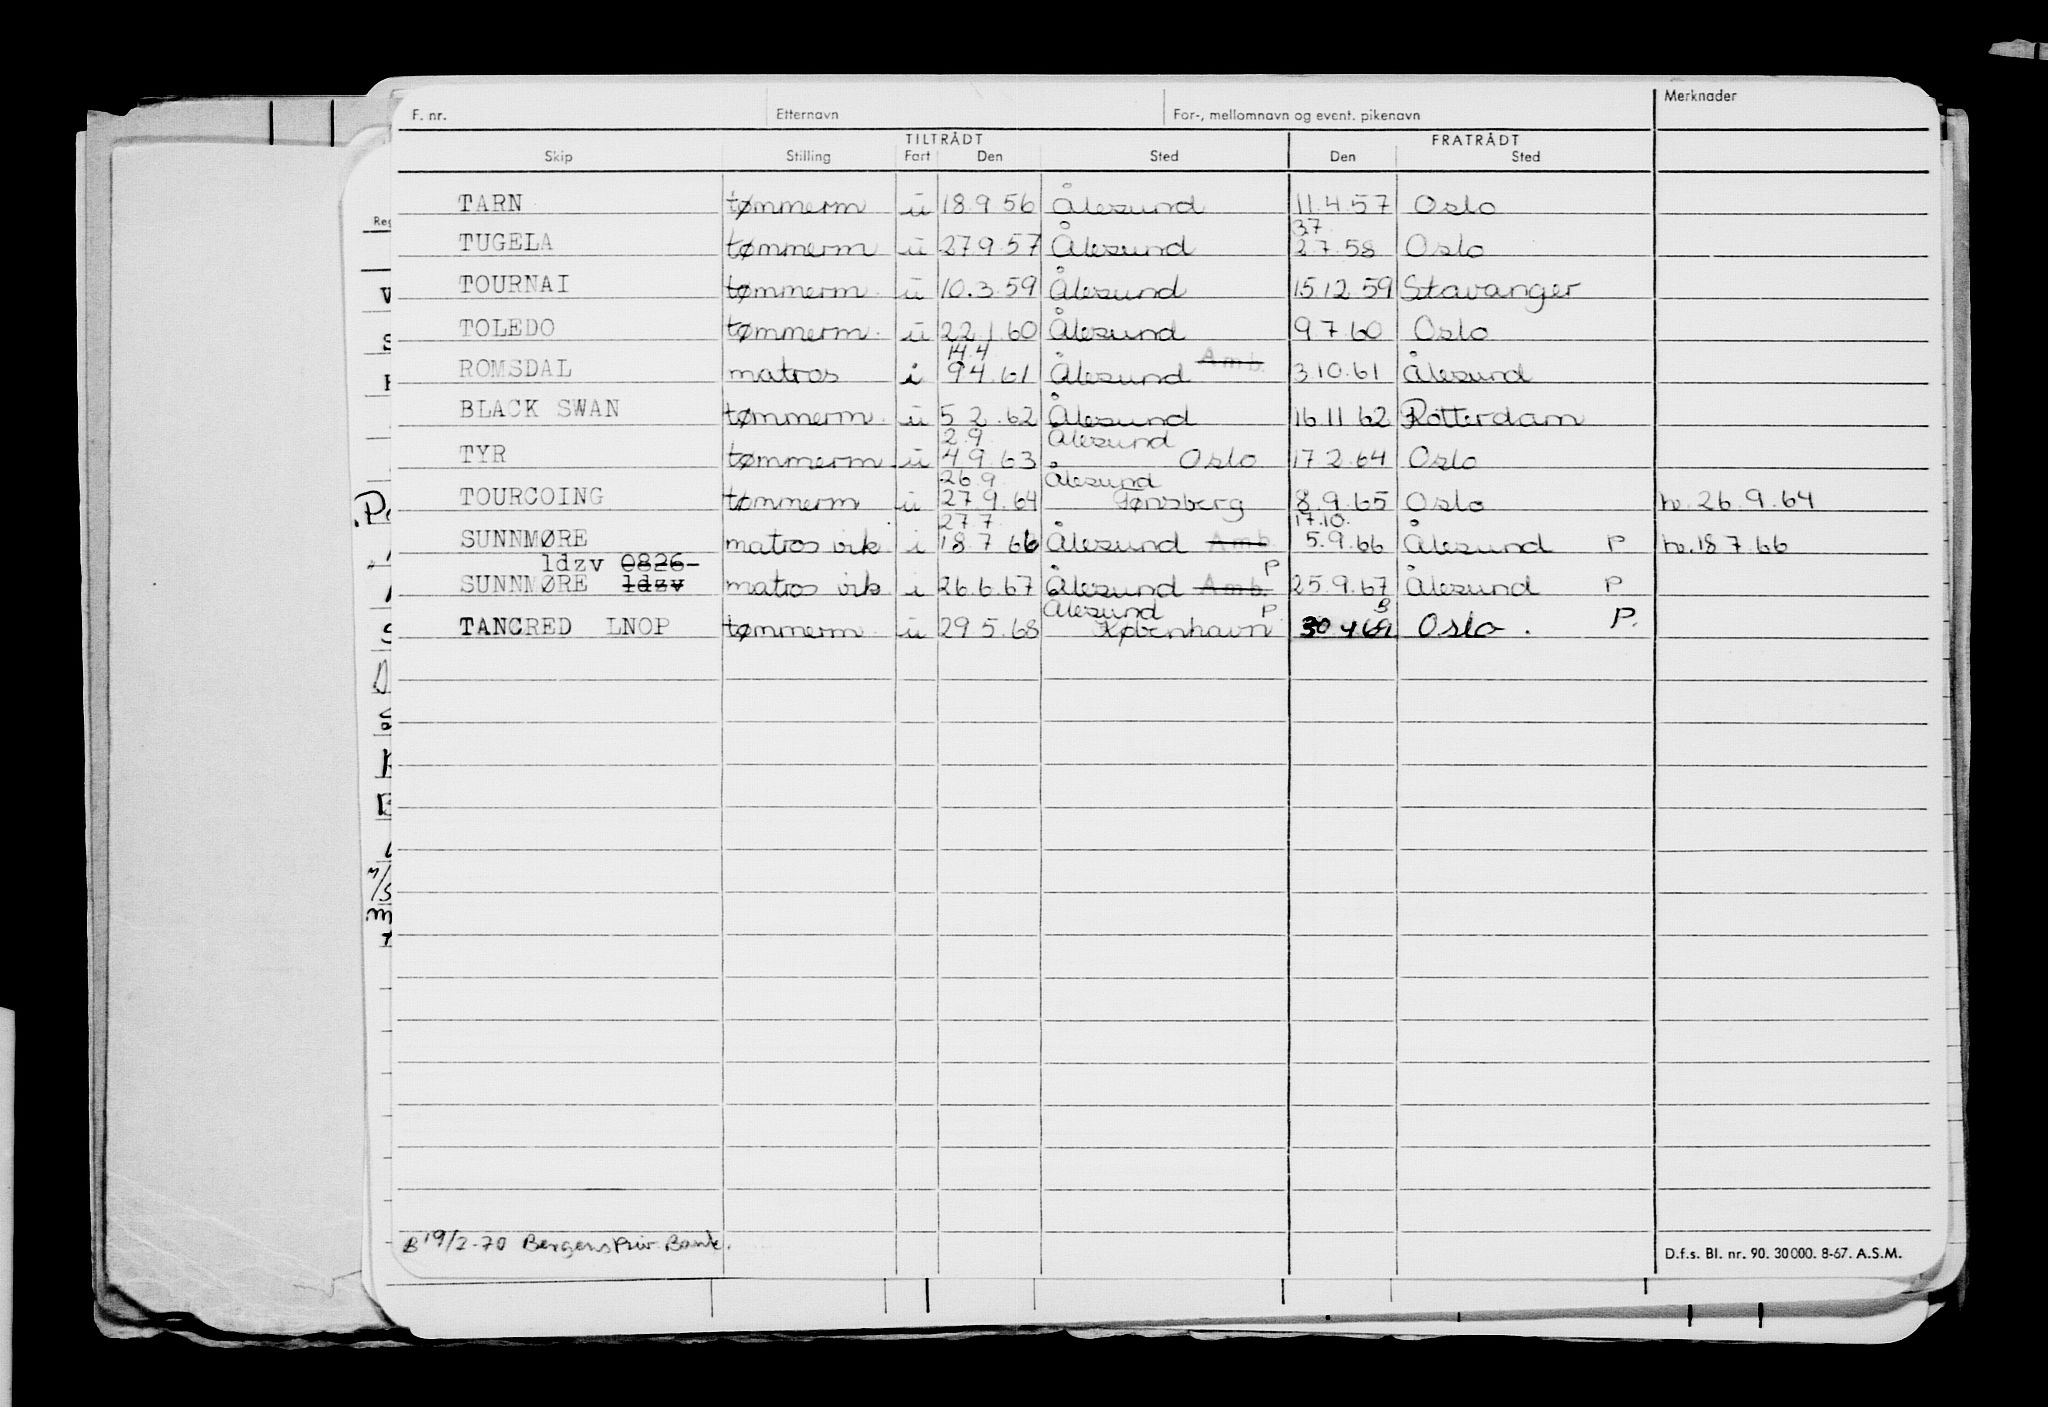 F. nr. Etternavn For-, mellomnavn og event. pikenavn Merknader
TILTRÅDT FRATRÅDT
Skip Stilling Fart Den Sted Den Sted
TARN tømmerm u 18.9.56 Ålesund 11.4.57 Oslo
3.7.
TUGELA tømmerm u 27.9.57 Ålesund 2.7.58 Oslo
TOURNAI tømmerm. u 10.3.59 Ålesund 15.12.59 Stavanger
TOLEDO tømmerm. u 22.1.60 Ålesund 9.7.60 Oslo
14.4 Amb.
ROMSDAL matros i 9.4.61 Ålesund 3.10.61 Ålesund
BLACK SWAN tømmerm. u 5.2.62 Ålesund 16.11.62 Rotterdam
2.9. Ålesund
TYR tømmerm u 4.9.63 Oslo 17.2.64 Oslo
26.9. Ålesund
TOURCOING tømmerm u 27.9.64 Tønsberg 8.9.65 Oslo h. 26.9.64
27.7. 17.10.
SUNNMØRE matros vik i 18.7.66 Ålesund Amb 5.9.66 Ålesund P h. 18.7.66
ldzv 0826- P
SUNNMØRE ldzv matros vik i 26.6.67 Ålesund Amb. 25.9.67 Ålesund P
Ålesund P B
TANCRED LNOP tømmerm. u 29.5.68 København 30.4.69 Oslo. P.
B 19/2-70 Bergens Priv. Bank.
D.f.s. Bl. nr. 90. 30000. 8-67. A.S.M.